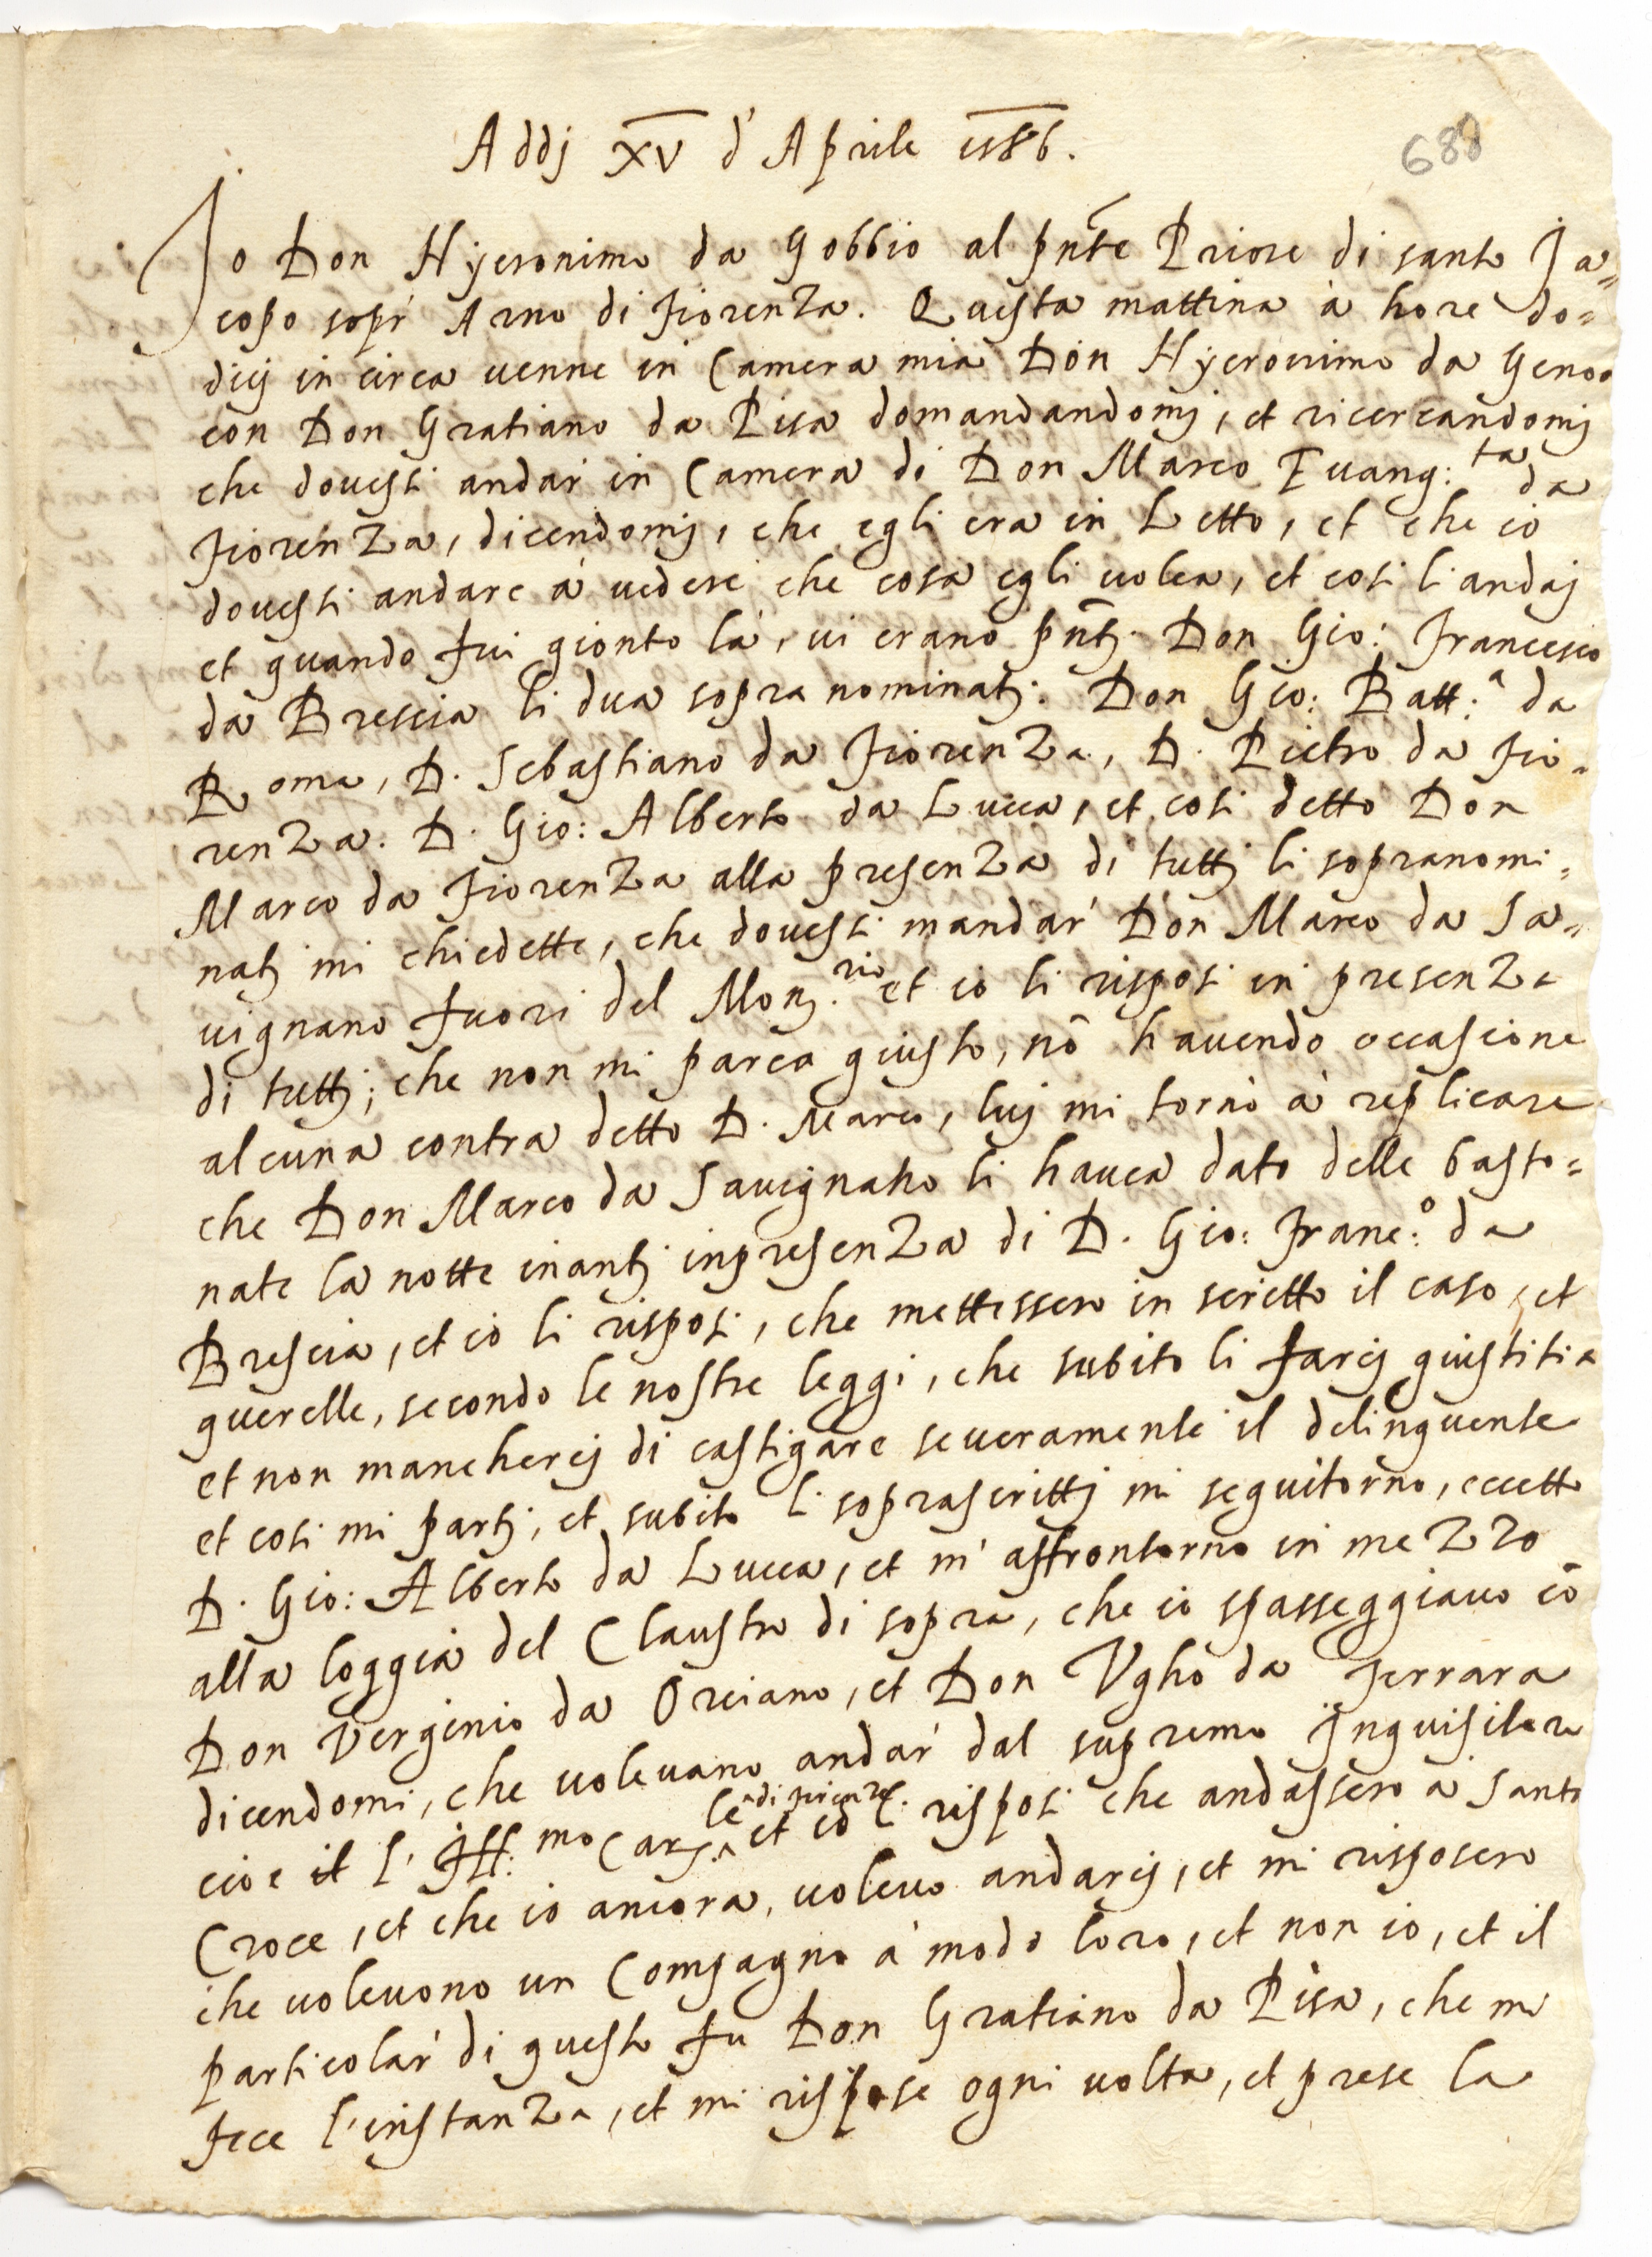 Addj XV d'Aprile 1586.
688
Jo Don Hyeronimo da Gobbio al pnte Priore di santo Ja=
copo sopr' Arno di Fiorenza. Questa mattina à hore do=
dici in circa uenne in Camera mia Don Hyeronimo da Genoa
con Don Gratiano da Pisa domandandomj, et ricercandomj
che douesti andar' in Camera di Don Marco Euang:ta da
Fiorenza, dicendomj, che egli era in Letto, et che io
douesti andare à uedere che cosa egli uolea, et cosi li andaj
et quando fui gionto là, ui erano pntj. Don Gio: Francesco
da Brescia li dua sopra nominatj. Don Gio: Batt:a da
Roma, D. Sebastiano da Fiorenza, D. Pietro da Fio=
renza. D. Gio: Alberto da Lucca, et cosi detto Don
Marco da Fiorenza alla presenza di tuttj li sopranomi=
natj mi chiedette, che douesti mandar' Don Marco da Sa=
uignano fuori del Mon.rio et io li risposi in presenza
di tuttj; che non mi parea giusto, nō hauendo occasione
alcuna contra detto D. Marco, luj mi tornò à replicare
che Don Marco da Sauignano li hauea dato delle basto=
nate la notte inantj inpresenza di D. Gio: Franc:o da
Brescia, et io li risposi, che mettessero in scritto il caso, et
querelle, secondo le nostre leggi, che subito li farej giustitia
et non mancherej di castigare seueramente il delinquente
et cosi mi partj, et subito li soprascrittj mi seguitorno, eccetto
D. Gio: Alberto da Lucca, et m' affrontorno in mezzo
alla loggia del Claustro di sopra, che io spasseggiauo cō
Don Verginio da Orciano, et Don Vgho da Ferrara
dicendomi, che uoleuano andar' dal supremo Jnquisitore
cioe il l' Ill:mo Car:le di Firenze et io li risposi che andassero à Santa
Croce, et che io ancora, uoleuo andarcj, et mi risposero
che uoleuono un Compagno à modo loro, et non io, et il
particolar' di questo fu Don Gratiano da Pisa, che mi
fece l'instanza, et mi rispose ogni uolta, et prese la